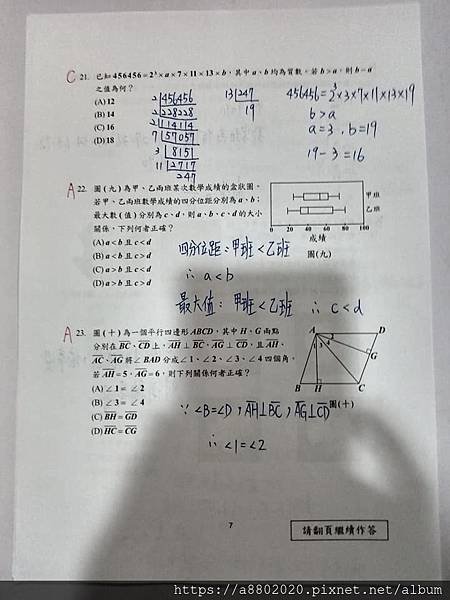 C 21. 已知 456456=2³×a×7×11×13×b，其中 a、b 均為質數，若 b>a，則 b-a
之值為何？
(A) 12
(B) 14
(C) 16
(D) 18
2 456456
2 228228
2 114114
7 57057
3 8151
11 2717
247
13 247
19
456456=2³×3×7×11×13×19
b>a
a=3，b=19
19-3=16
A 22. 圖(九)為甲、乙兩班某次數學成績的盒狀圖，
若甲、乙兩班數學成績的四分位距分別為 a、b；
最大數(值)分別為 c、d，則 a、b、c、d 的大小
關係，下列何者正確？
(A) a<b 且 c<d
(B) a<b 且 c>d
(C) a>b 且 c<d
(D) a>b 且 c>d
甲班
乙班
0 20 40 60 80 100
成績
圖(九)
四分位距：甲班<乙班
∴ a<b
最大值：甲班<乙班 ∴ c<d
A 23. 圖(十)為一個平行四邊形 ABCD，其中 H、G 兩點
分別在 BC、CD 上，AH⊥BC、AG⊥CD，且 AH、
AC、AG 將∠BAD 分成∠1、∠2、∠3、∠4 四個角，
若 AH=5，AG=6，則下列關係何者正確？
(A) ∠1=∠2
(B) ∠3=∠4
(C) BH=GD
(D) HC=CG
A D
G
B H C
圖(十)
∵ ∠B=∠D，AH⊥BC，AG⊥CD
∴ ∠1=∠2
7
請翻頁繼續作答
https://a8802020.pixnet.net/album